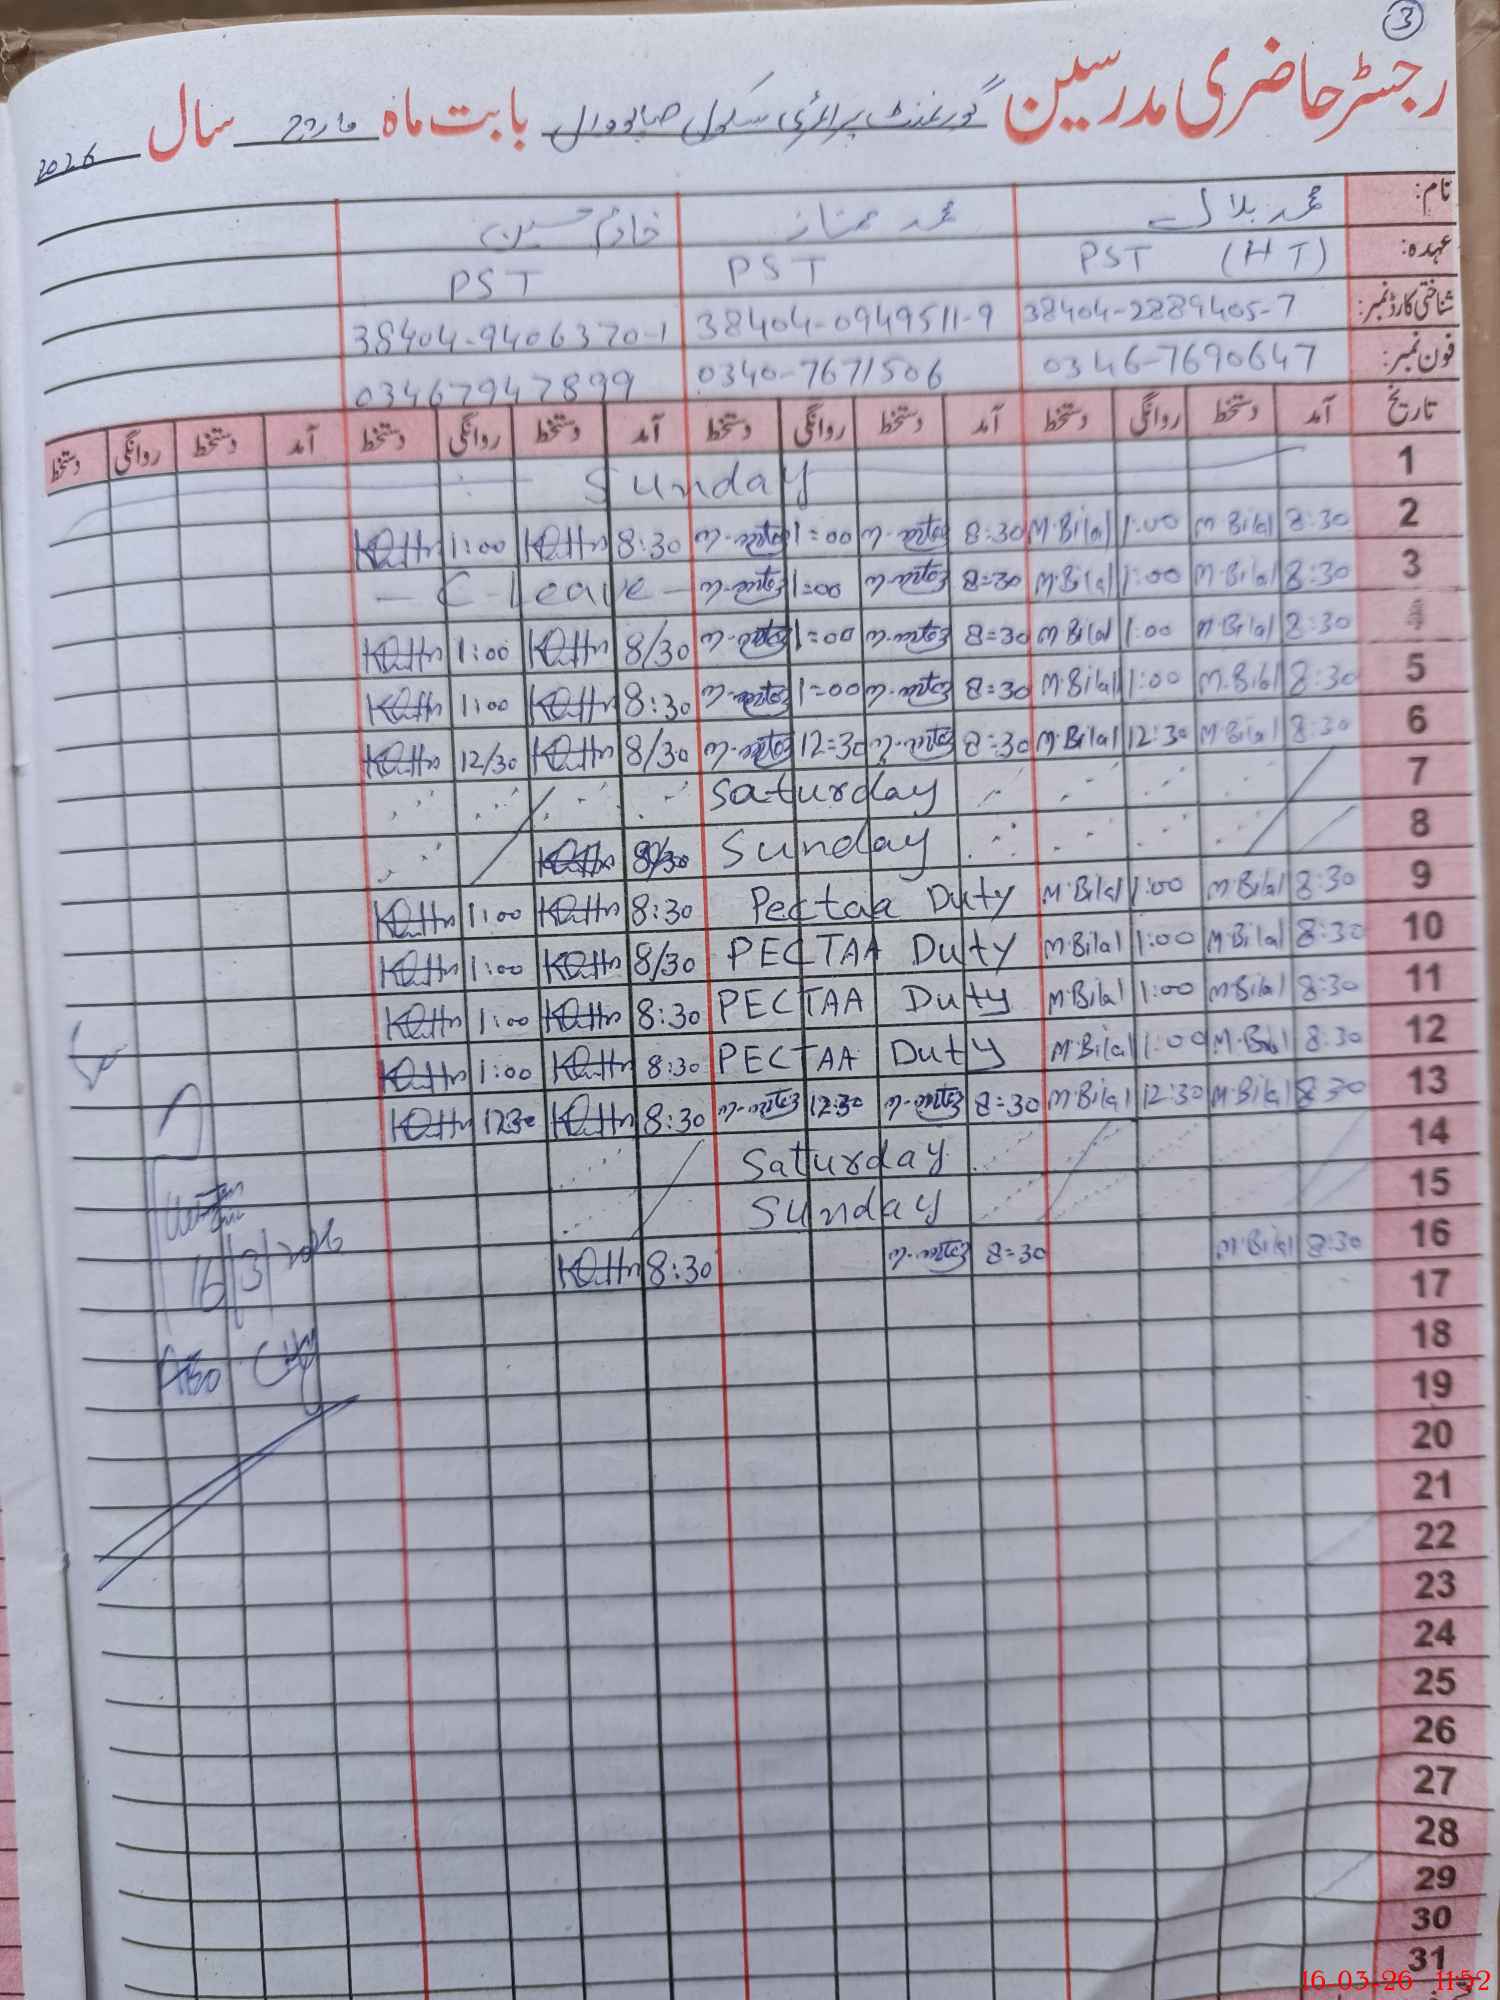 3
رجسٹر حاضری مدرسین گورنمنٹ پرائمری سکول بابت ماہ مارچ سال 2026
نام: محمد بلال محمد ممتاز خادم حسین
عہدہ: PST (HT) PST PST
شناختی کارڈ نمبر: 38404-2889405-7 38404-0949511-9 38404-9406370-1
فون نمبر: 0346-7690647 0340-7671506 03467947899
تاریخ آمد دستخط روانگی دستخط آمد دستخط روانگی دستخط آمد دستخط روانگی دستخط آمد دستخط روانگی دستخط
1 Sunday
2 8:30 M.Bilal 1:00 M.Bilal 8:30 1=00 8:30 1:00
3 8:30 M.Bilal 1:00 M.Bilal 8=30 1=00 - C-Leave -
4 8:30 M.Bilal 1:00 M Bilal 8=30 1=00 8/30 1:00
5 8:30 M.Bilal 1:00 M.Bilal 8=30 1=00 8:30 1:00
6 8:30 M.Bilal 12:30 M.Bilal 8=30 12=30 8/30 12/30
7 Saturday
8 Sunday 8/30
9 8:30 M.Bilal 1:00 M.Bilal Pectaa Duty 8:30 1:00
10 8:30 M.Bilal 1:00 M.Bilal PECTAA Duty 8/30 1:00
11 8:30 M.Bilal 1:00 M.Bilal PECTAA Duty 8:30 1:00
12 8:30 M.Bilal 1:00 M.Bilal PECTAA Duty 8:30 1:00
13 8:30 M.Bilal 12:30 M.Bilal 8=30 12:30 8:30 1230
14 Saturday
15 Sunday
16 8:30 M.Bilal 8=30 8:30
16/3/2026
17
18
19
20
21
22
23
24
25
26
27
28
29
30
31
16-03-26 11:52